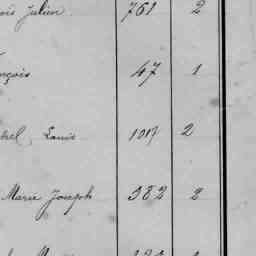 ois Julien 761 2
nçois 47 1
hel Louis 1017 2
Marie Joseph 382 2